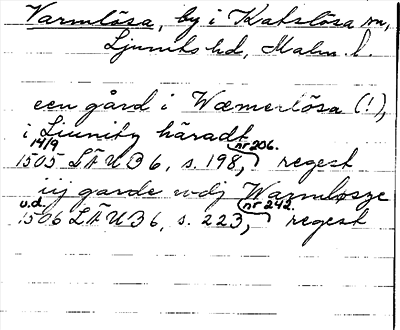 Varmlösa, by i Katslösa sn,
Ljunits hd, Malm. l.
een gård i Wæmerlösa (!),
i Liunitz häradt
14/9 nr 206.
1505 LÄUB 6, s. 198, regest
iij garde wdj Warmløsze
u.d. nr 242.
1506 LÄUB 6, s. 223, regest